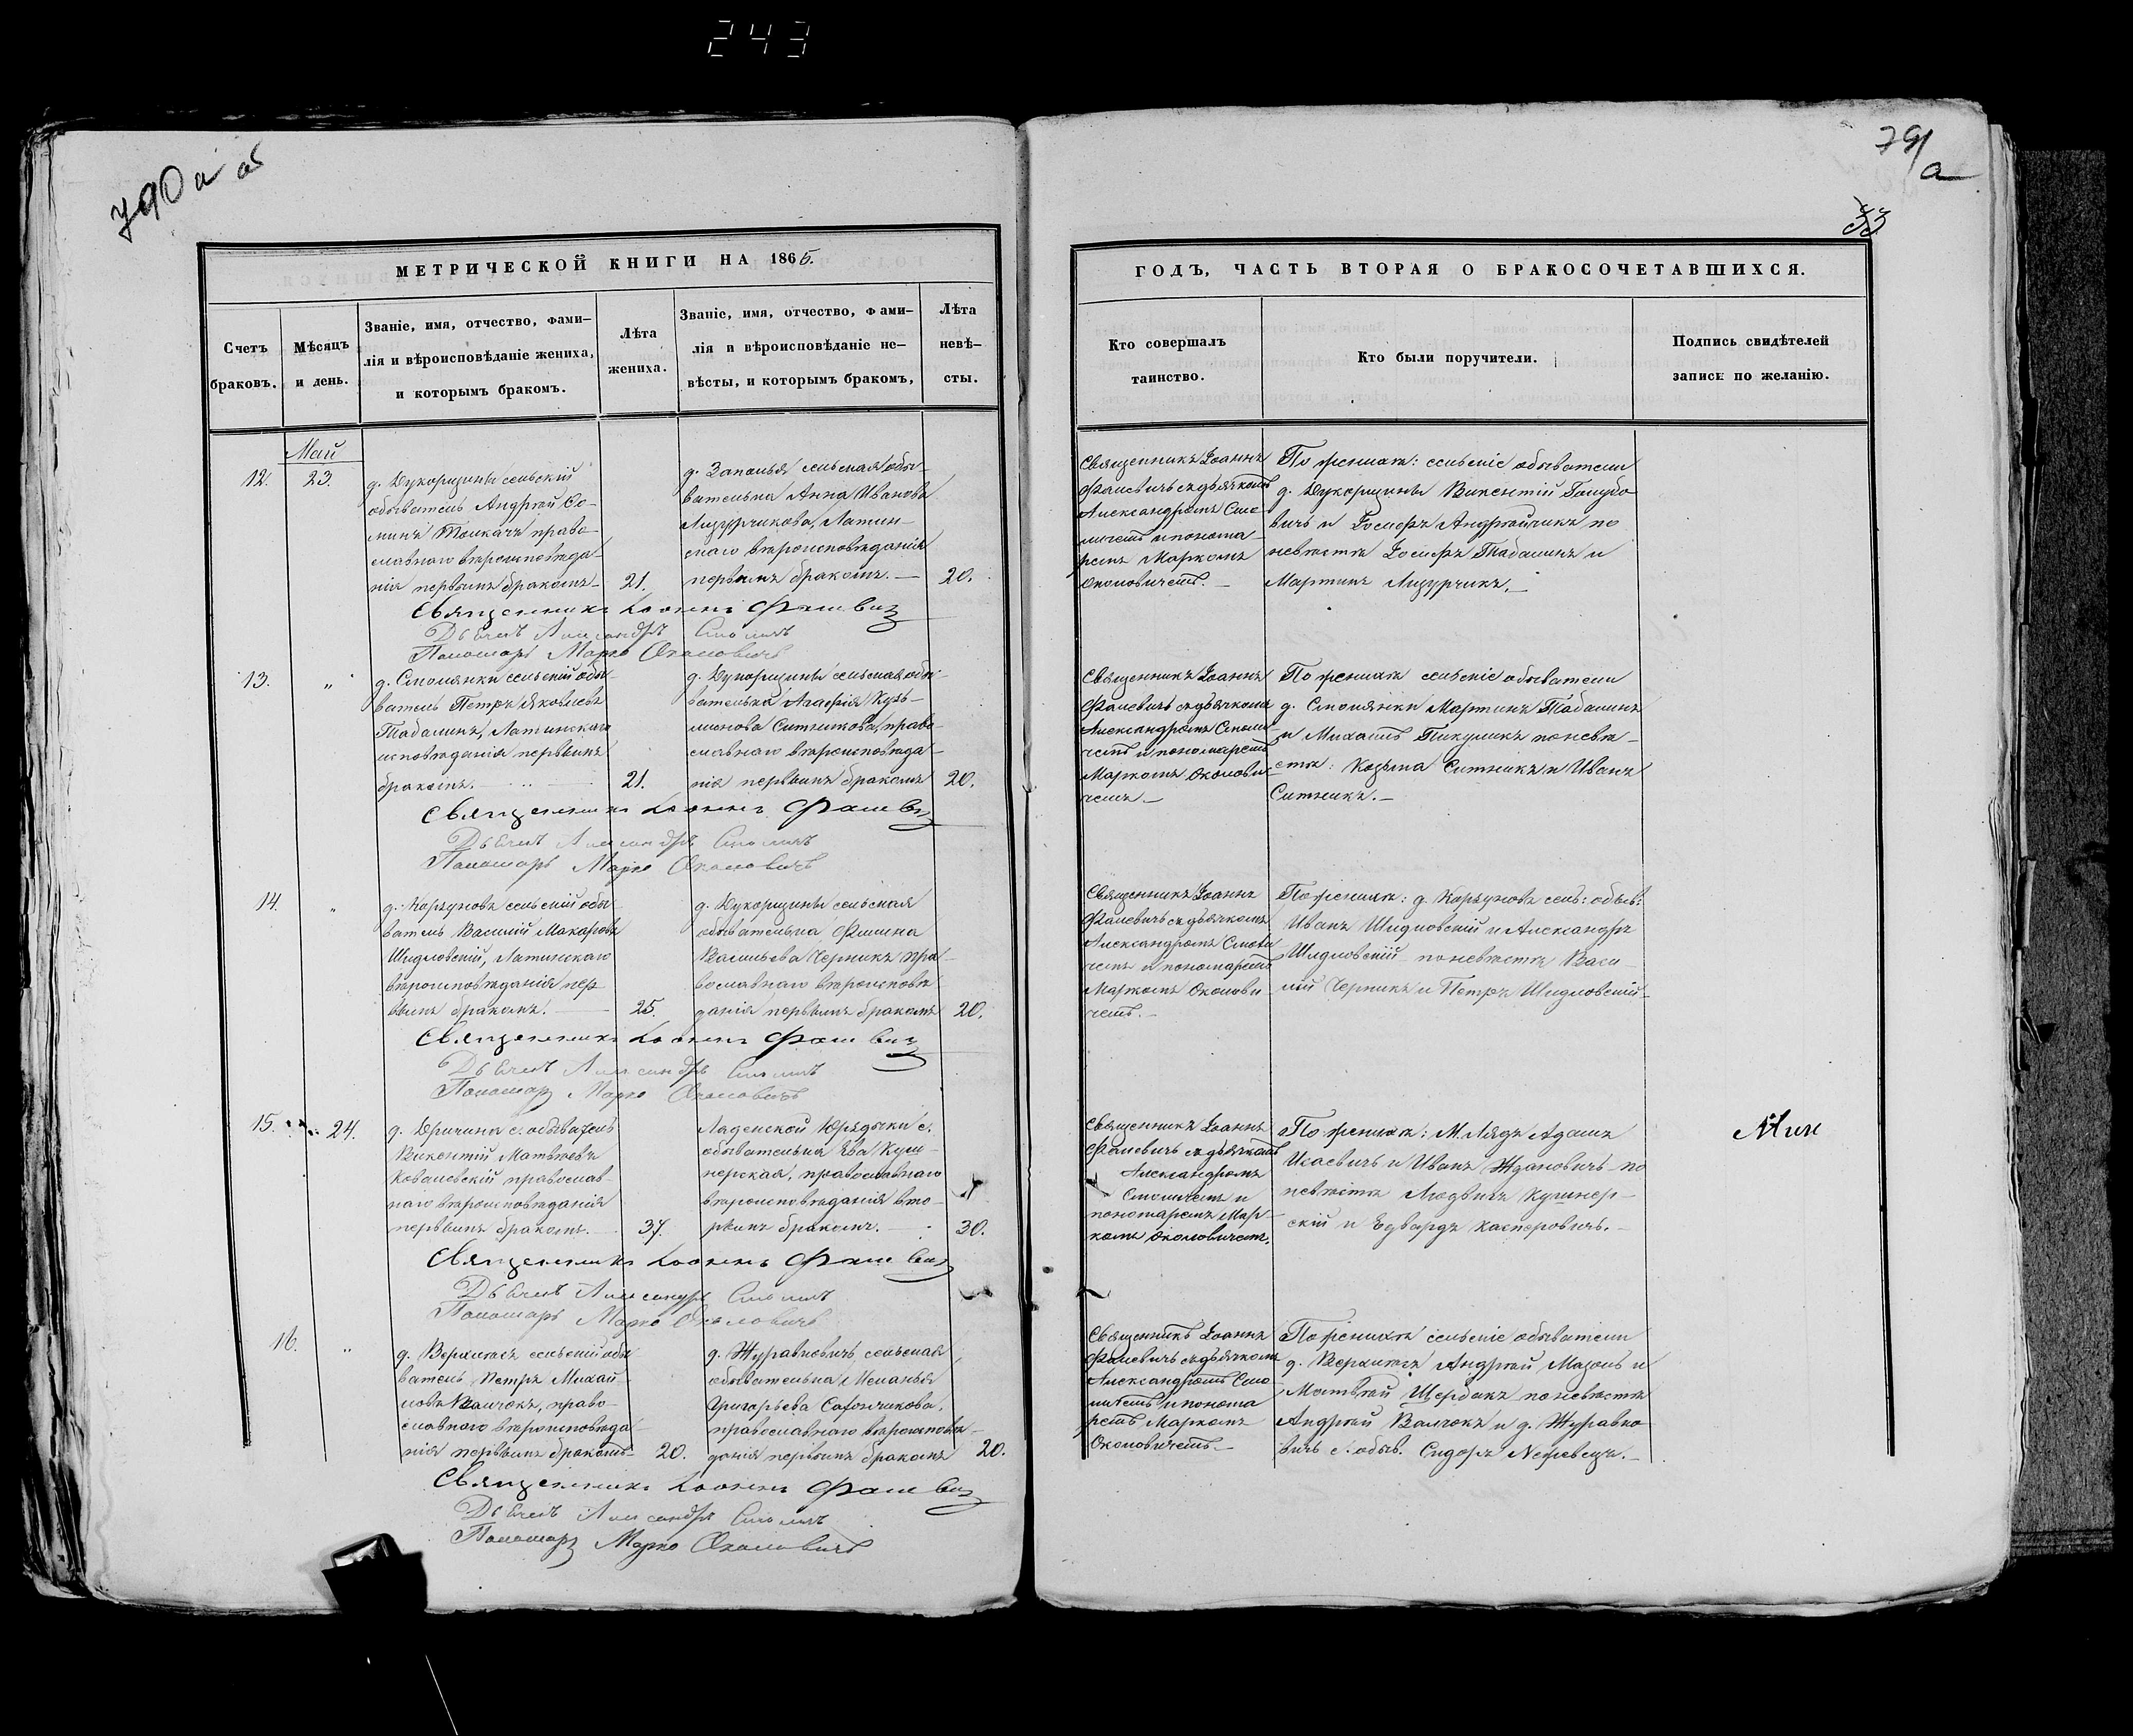 243
790 и об
791
а
33
МЕТРИЧЕСКОЙ КНИГИ НА 1865.
Счетъ
браковъ.
Мѣсяцъ
и день.
Званіе, имя, отчество, фами-
лія и вѣроисповѣданіе жениха,
и которымъ бракомъ.
Лѣта
жениха.
Званіе, имя, отчество, фами-
лія и вѣроисповѣданіе не-
вѣсты, и которымъ бракомъ,
Лѣта
невѣ-
сты.
ГОДЪ, ЧАСТЬ ВТОРАЯ О БРАКОСОЧЕТАВШИХСЯ.
Кто совершалъ
таинство.
Кто были поручители.
Подпись свидѣтелей
записе по желанію.
Май
12.
23.
д. Дукорщины сельскій
обыватель Андрей Ѳо-
минъ Толкачъ право-
славнаго вѣроисповѣда-
нія первымъ бракомъ
21.
д. Заполья сельская обы-
вателька Анна Иванова
Лизурчикова, Латин-
скаго вѣроисповѣданія
первымъ бракомъ. —
20.
Священникъ Іоаннъ
Фалевичъ съ дьячкомъ
Александромъ Смо-
личемъ и понома-
ремъ Маркомъ
Околовичемъ. —
По женихѣ: сельскіе обыватели
д. Дукорщины Викентій Голубо
вичъ и Іосифъ Андрейчикъ по
невѣстѣ Іосифъ Табалинъ и
Мартинъ Лизурчикъ. —
Священникъ Іоаннъ Фалевичъ
Дьячекъ Александръ Смоличъ
Пономарь Марко Околовичъ
13.
"
д. Смолянки сельскій обы-
ватель Петръ Яковлевъ
Табалинъ, Латинскаго
исповѣданія первымъ
бракомъ.
21.
д. Дукорщины сельская обы-
вателька Агафія Кузь-
минова Ситникова, право-
славнаго вѣроисповѣда-
нія первымъ бракомъ
20.
Священникъ Іоаннъ
Фалевичъ съ дьячкомъ
Александромъ Смоли-
чемъ и пономаремъ
Маркомъ Околови-
чемъ. —
По женихѣ сельскіе обыватели
д. Смолянки Мартинъ Табалинъ
и Михаилъ Пикуликъ по невѣ-
стѣ: Козьма Ситникъ и Иванъ
Ситникъ. —
Священникъ Іоаннъ Фалевичъ
Дьячекъ Александръ Смоличъ
Пономарь Марко Околовичъ
14.
"
д. Корзуновъ сельскій обы-
ватель Василій Макаровъ
Шидловскій, Латинскаго
вѣроисповѣданія пер-
вымъ бракомъ. —
25.
д. Дукорщины сельская
обывателька
Васильева Черникъ пра-
вославнаго вѣроисповѣ
данія первымъ бракомъ
20.
Священникъ Іоаннъ
Фалевичъ съ дьячкомъ
Александромъ Смоли
чемъ и пономаремъ
Маркомъ Околови
чемъ. —
По женихѣ: д. Корзуновъ сель: обыв:
Иванъ Шидловскій и Александръ
Шидловскій по невѣстѣ Васи-
лій Черникъ и Петръ Шидловскій
Священникъ Іоаннъ Фалевичъ
Дьячекъ Александръ Смоличъ
Пономарь Марко Околовичъ
15.
24.
д. Дричина с. обыватель
Викентій Матѳѣевъ
Ковалевскій православ-
наго вѣроисповѣданія
первымъ бракомъ.
37.
Ляденской Юрздыки с.
обывателька Ева Куш-
нерская, православнаго
вѣроисповѣданія вто-
рымъ бракомъ. —
30.
Священникъ Іоаннъ
Фалевичъ съ дьячкомъ
Александромъ
Смоличемъ и
пономаремъ Мар-
комъ Околовичемъ.
По женихѣ: М. Лядъ Адамъ
Исаевичъ и Иванъ Ждановичъ по
невѣстѣ Людвигъ Кушнер-
скій и Едвардъ Касперовичъ. —
Священникъ Іоаннъ Фалевичъ
Дьячекъ Александръ Смоличъ
Пономарь Марко Околовичъ
16.
"
д. Верхлѣсъ сельскій обы
ватель Петръ Михай-
ловъ Валчокъ, право-
славнаго вѣроисповѣда
нія первымъ бракомъ
20.
д. Журавковичъ сельская
обывателька Меланья
Григорьева Сафончикова,
православнаго вѣроисповѣ-
данія первымъ бракомъ
20.
Священникъ Іоаннъ
Фалевичъ съ дьячкомъ
Александромъ Смо
личемъ и понома
ремъ Маркомъ
Околовичемъ. —
По женихѣ сельскіе обыватели
д. Верхлѣсъ Андрей Мазоль и
Матвѣй Щербакъ по невѣстѣ
Андрей Валчокъ и д. Журавко
вичъ с. обыв. Сидоръ
Священникъ Іоаннъ Фалевичъ
Дьячекъ Александръ Смоличъ
Пономарь Марко Околовичъ